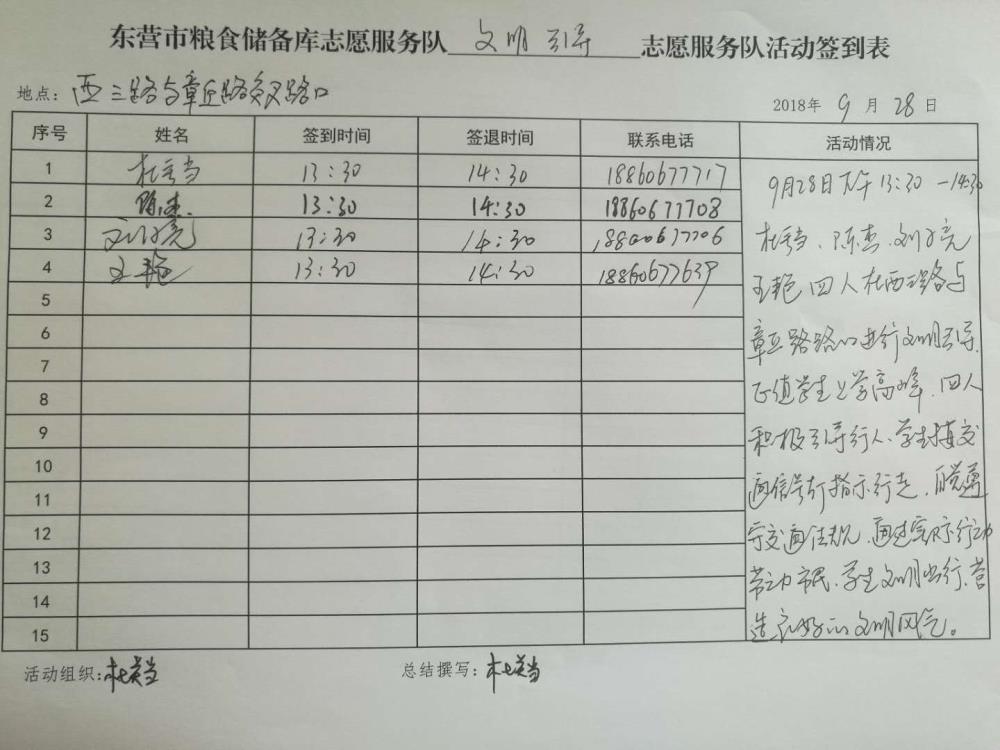 东营市粮食储备库志愿服务队 文明引导 志愿服务队活动签到表
地点：西三路与章丘路交叉路口
2018年 9 月 28 日
序号 姓名 签到时间 签退时间 联系电话 活动情况
1 杜 当 13:30 14:30 18860677717
2 陈杰 13:30 14:30 18860677708
3 刘 亮 13:30 14:30 18860677706
4 王艳 13:30 14:30 18860677639
5
6
7
8
9
10
11
12
13
14
15
9月28日下午13:30-14:30
杜 当、陈杰、刘 亮
王艳四人在西三路与
章丘路路口进行文明引导，
正值学生上学高峰，四人
积极引导行人、学生按交
通信号灯指示行走，自觉遵
守交通法规，通过实际行动
带动市民、学生文明出行，营
造良好的文明风气。
活动组织：杜 当
总结撰写：杜 当